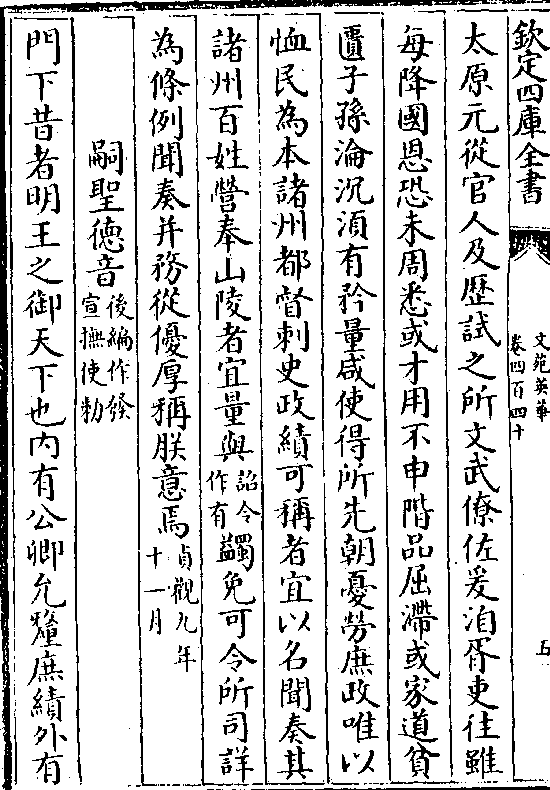 欽定四庫全書
文苑英華
卷四百四十
五
太原元從官人及歴試之所文武僚佐爰洎胥吏往雖
每降國恩恐未周悉或才用不申階品屈滯或家道貧
匱子孫淪沉湏有矜量咸使得所先朝憂勞庶政唯以
恤民為本諸州都督刺史政績可稱者宜以名聞奏其
諸州百姓營奉山陵者宜量與詔令作有蠲免可令所司詳
為條例聞奏并務從優厚稱朕意焉貞觀九年十一月
嗣聖德音後編作發宣撫使勅
門下昔者明王之御天下也内有公卿允釐庶績外有